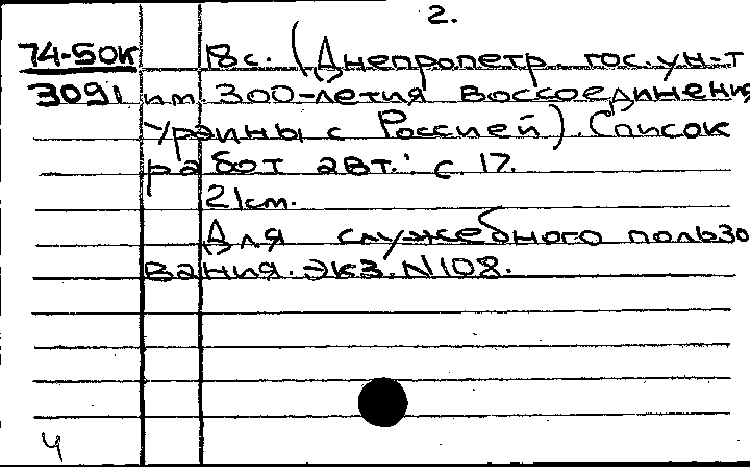 2.
74-50к 18 с. (Днепропетр. гос. ун-т
3091 им. 300-летия Воссоединения
Украины с Россией). Список
работ авт.: с. 17.
21 см.
Для служебного пользо
вания. Экз. N 108.
4